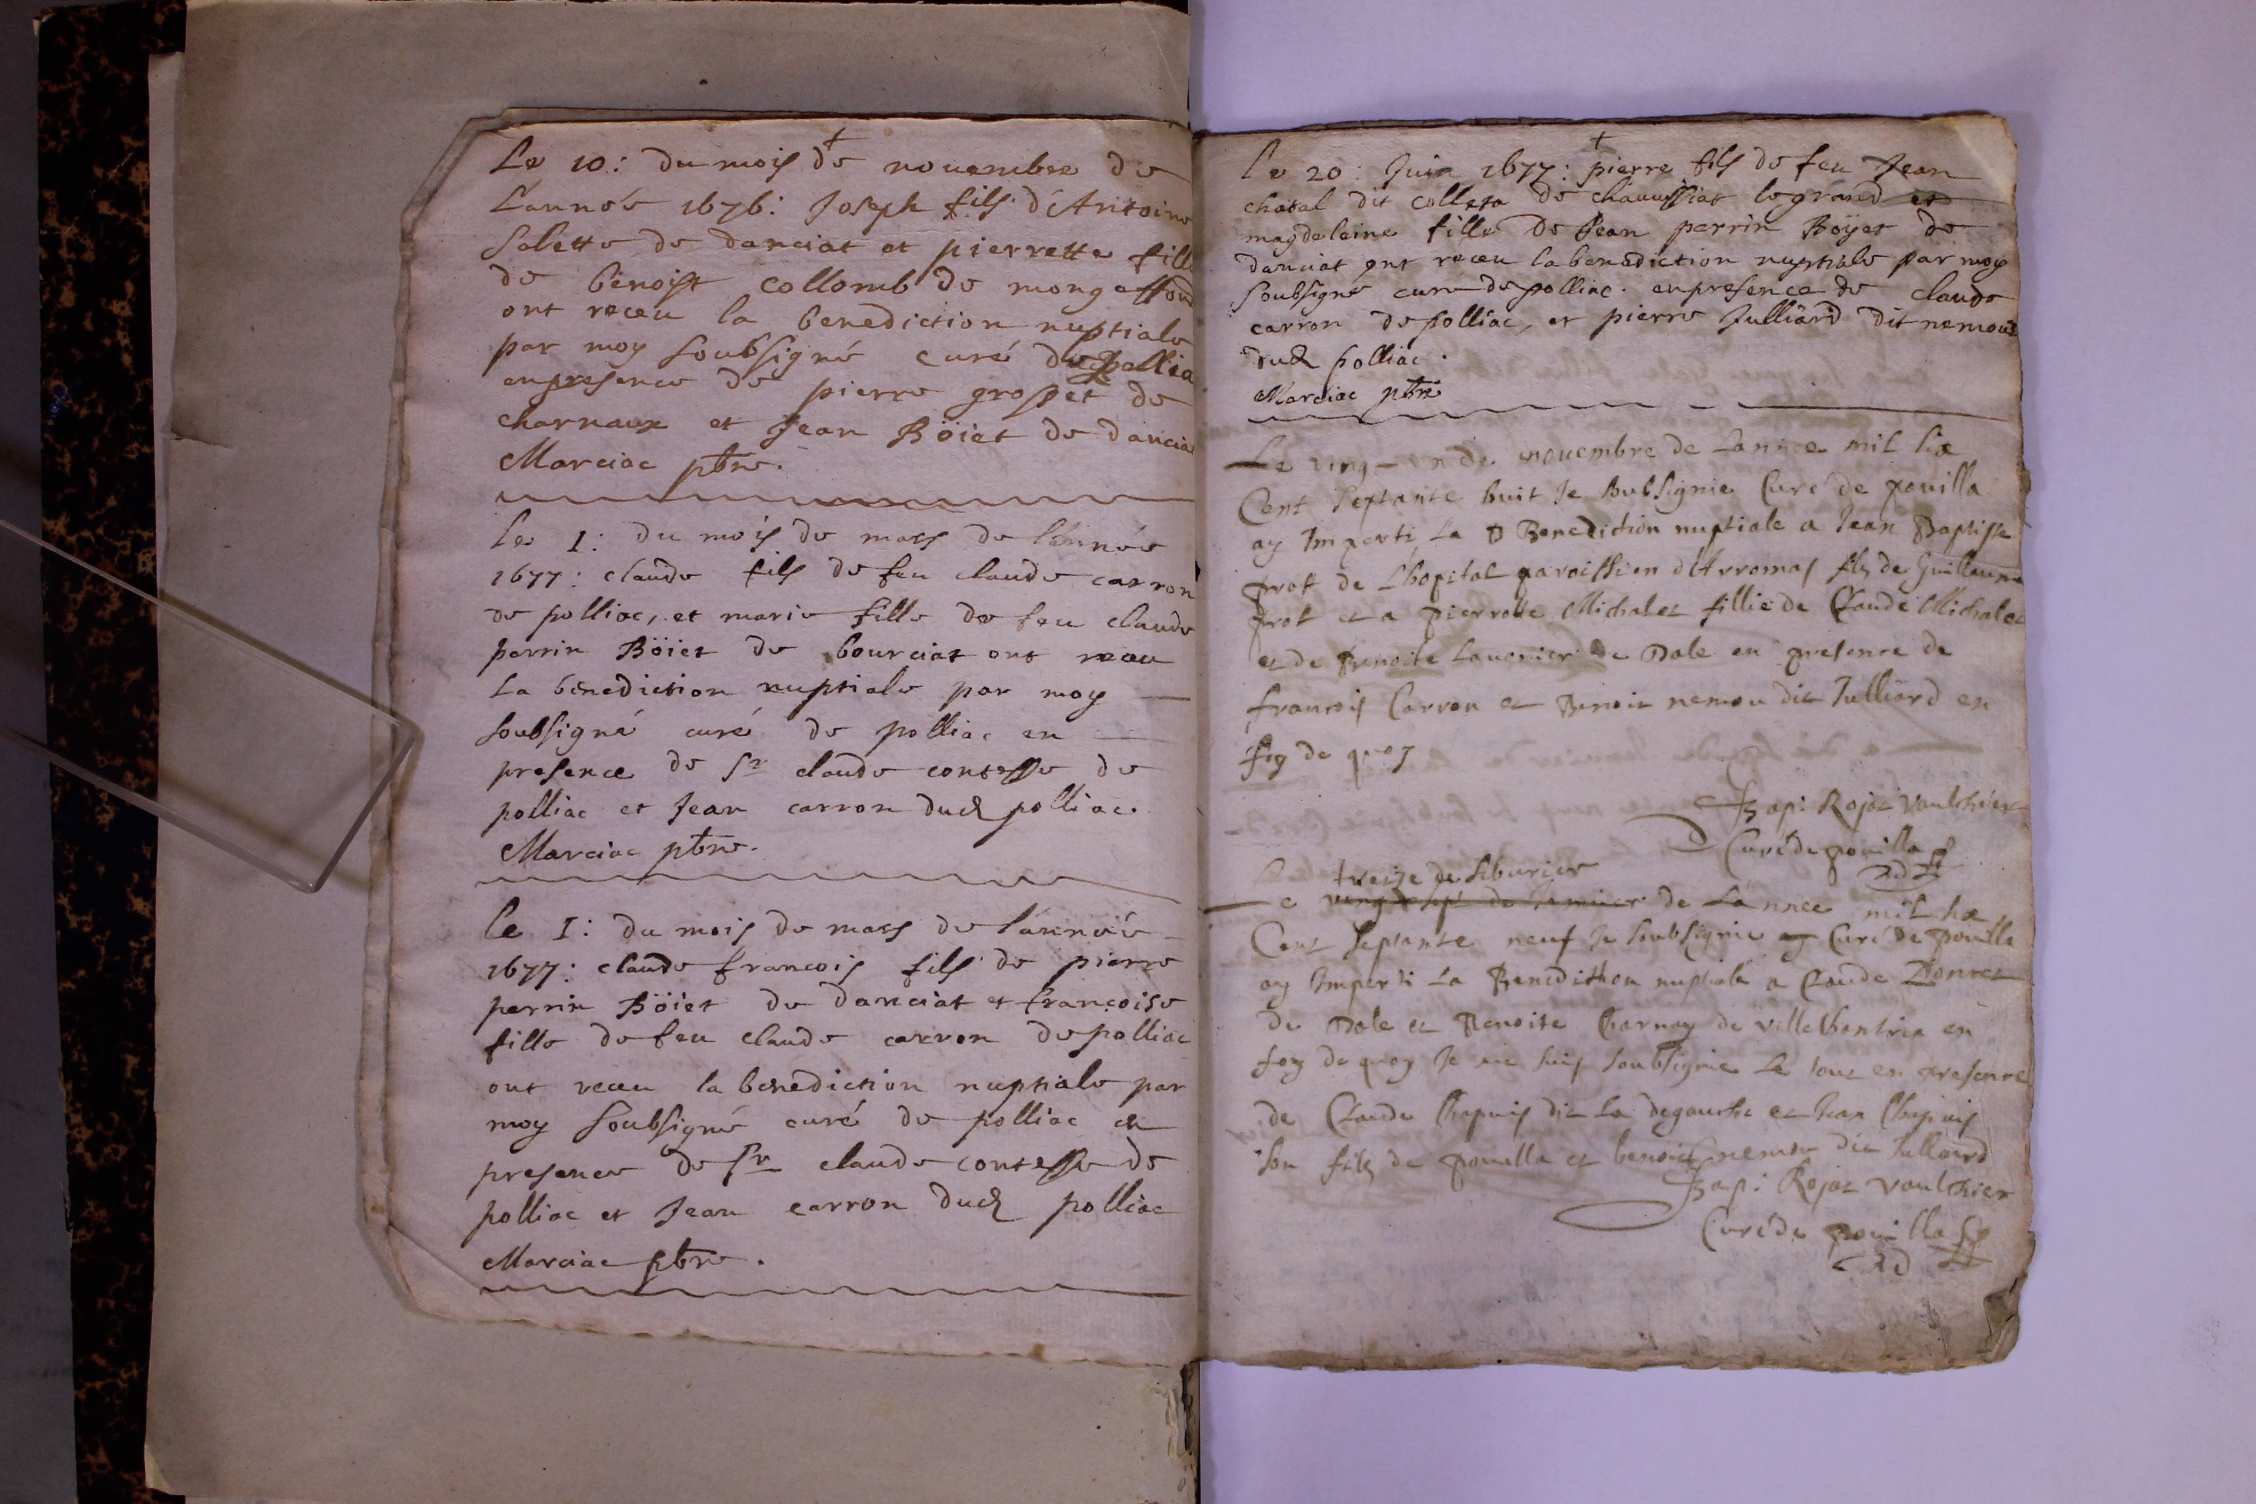 Le 10: du mois de nouembre de
L'année 1676: Joseph fils d'Antoine
Salette de danciat et pierrette fille
de benoist collomb de mongeffond
ont receu la benediction nuptiale
par moy soubsigné curé de pollia
en presence de pierre grospet de
charnaux et Jean Böiet de dancia
Marciac pbre.
Le 1: du mois de mars de l'année
1677: claude fils de feu claude carron
de polliac, et marie fille de feu claude
perrin Böiet de bourciat ont receu
la benediction nuptiale par moy
soubsigné curé de polliac en
presence de sr claude contesse de
polliac et Jean carron dud polliac.
Marciac pbre.
Le 1: du mois de mars de l'année
1677: claude francois fils de pierre
perrin Böiet de danciat et françoise
fille de feu claude carron de polliac
ont receu la benediction nuptiale par
moy soubsigné curé de polliac en
presence de sr claude contesse de
polliac et Jean carron dud polliac
Marciac pbre.
Le 20: Juin 1677: pierre fils de feu Jean
chatal dit colleta de chauussiat le grand et
magdelaine fille de Jean perrin Böyet de
danciat ont receu la benediction nuptiale par moy
soubsigné curé de polliac. en presence de claude
carron de polliac, et pierre Julliard dit nemoud
dud polliac.
Marciac pbre
Le ving-un de nouembre de Lannee mil six
Cent septante huit Je subsignie Curé de pouilla
ay Imparti La Benediction nuptiale a Jean Baptiste
prost de L'hopital paroissien d'Arromas fils de Guillaume
prost et a pierrotte Michalet fillie de Claude Michalet
et de Benoite Lauenier de Dole en presence de
francois Carron et Benoit nemou dit Julliard en
foy de quoy
Bapi: Rojat Vaulchier
Curé de pouilla
treize de feburier
Le ving sept de Januier de Lannee mil six
Cent septante neuf Je soubsignie Curé de pouilla
ay Imparti La Benediction nuptiale a Claude
de Dole et Benoite Charnay de en
foy de quoy Je me suis soubsignie Le tout en presence
de Claude Chapuis dit La degauche et Jean Chapuis
son fils de pouilla et benoit nemou dit Julliard
Bapi: Rojat Vaulchier
Curé de pouilla